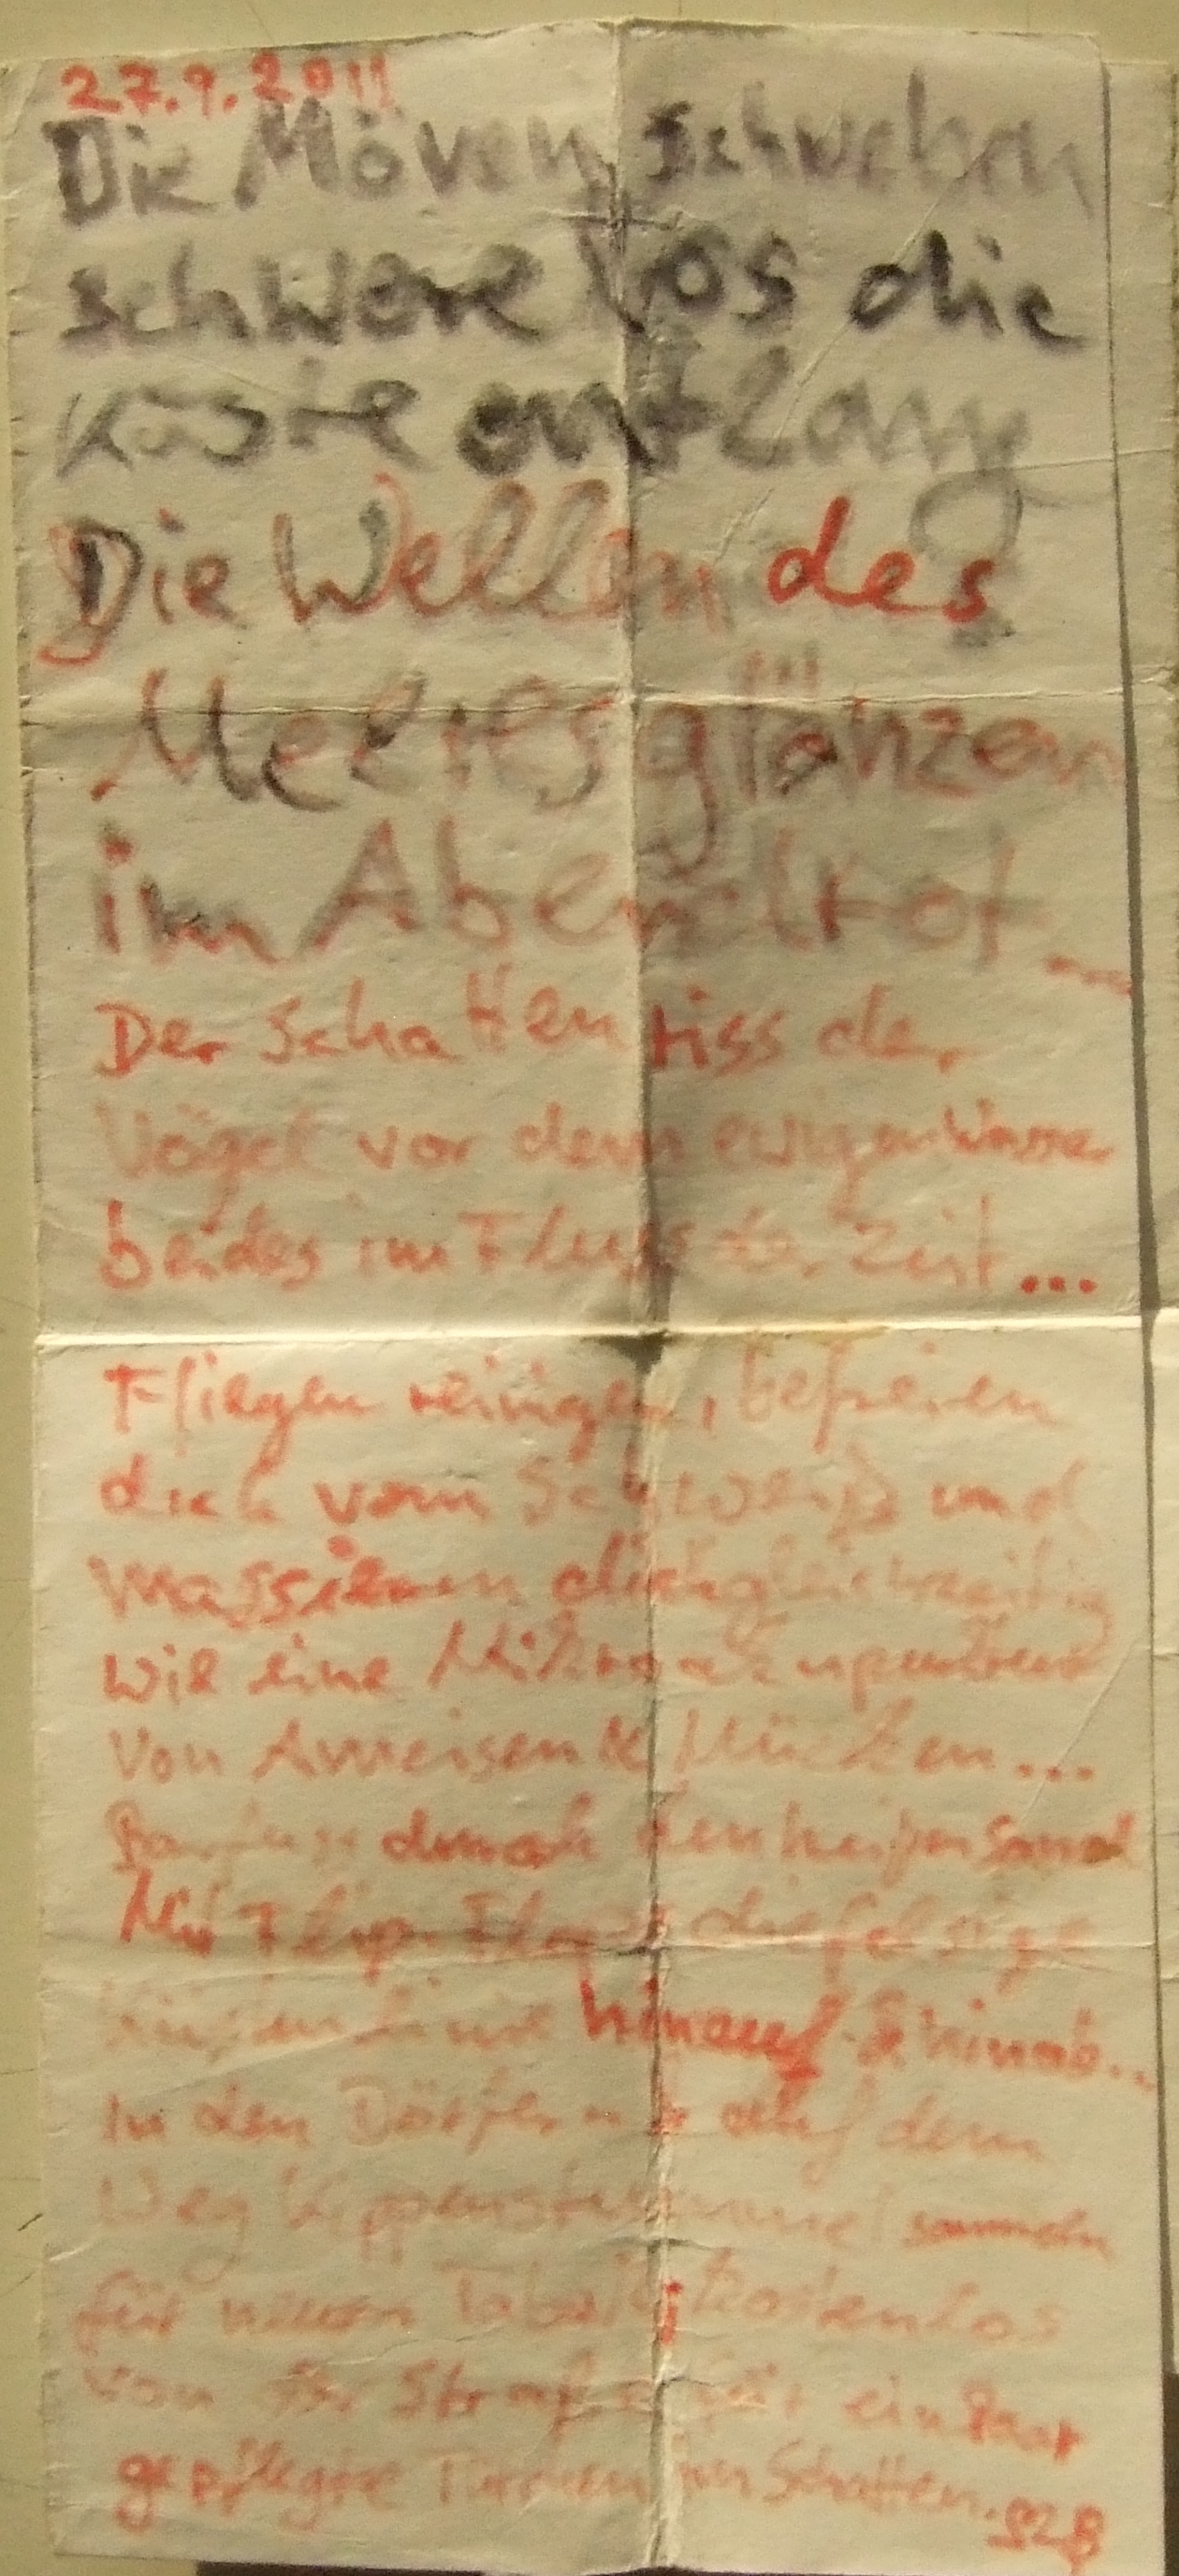 27.9.2011
Die Möven schweben
schwerelos die
Küste entlang
Die Wellen des
Meeres glänzen
im Abendrot
Der Schattenriss der
Vögel vor dem ewigen Wasser
beides im Fluss der Zeit...
Fliegen reinigen, befreien
dich vom Schweiß und
massieren dich gleichzeitig
wie eine Mikroakupunktur
von Ameisen & Mücken...
Barfuss durch den heißen Sand
Mit Flip-Flops die felsige
Küstenlinie hinauf & hinab...
In den Dörfern & auf dem
Weg Kippenstummel sammeln
für neuen Tabak, kostenlos
von der Straße für ein paar
gepflegte Tüten im Schatten.